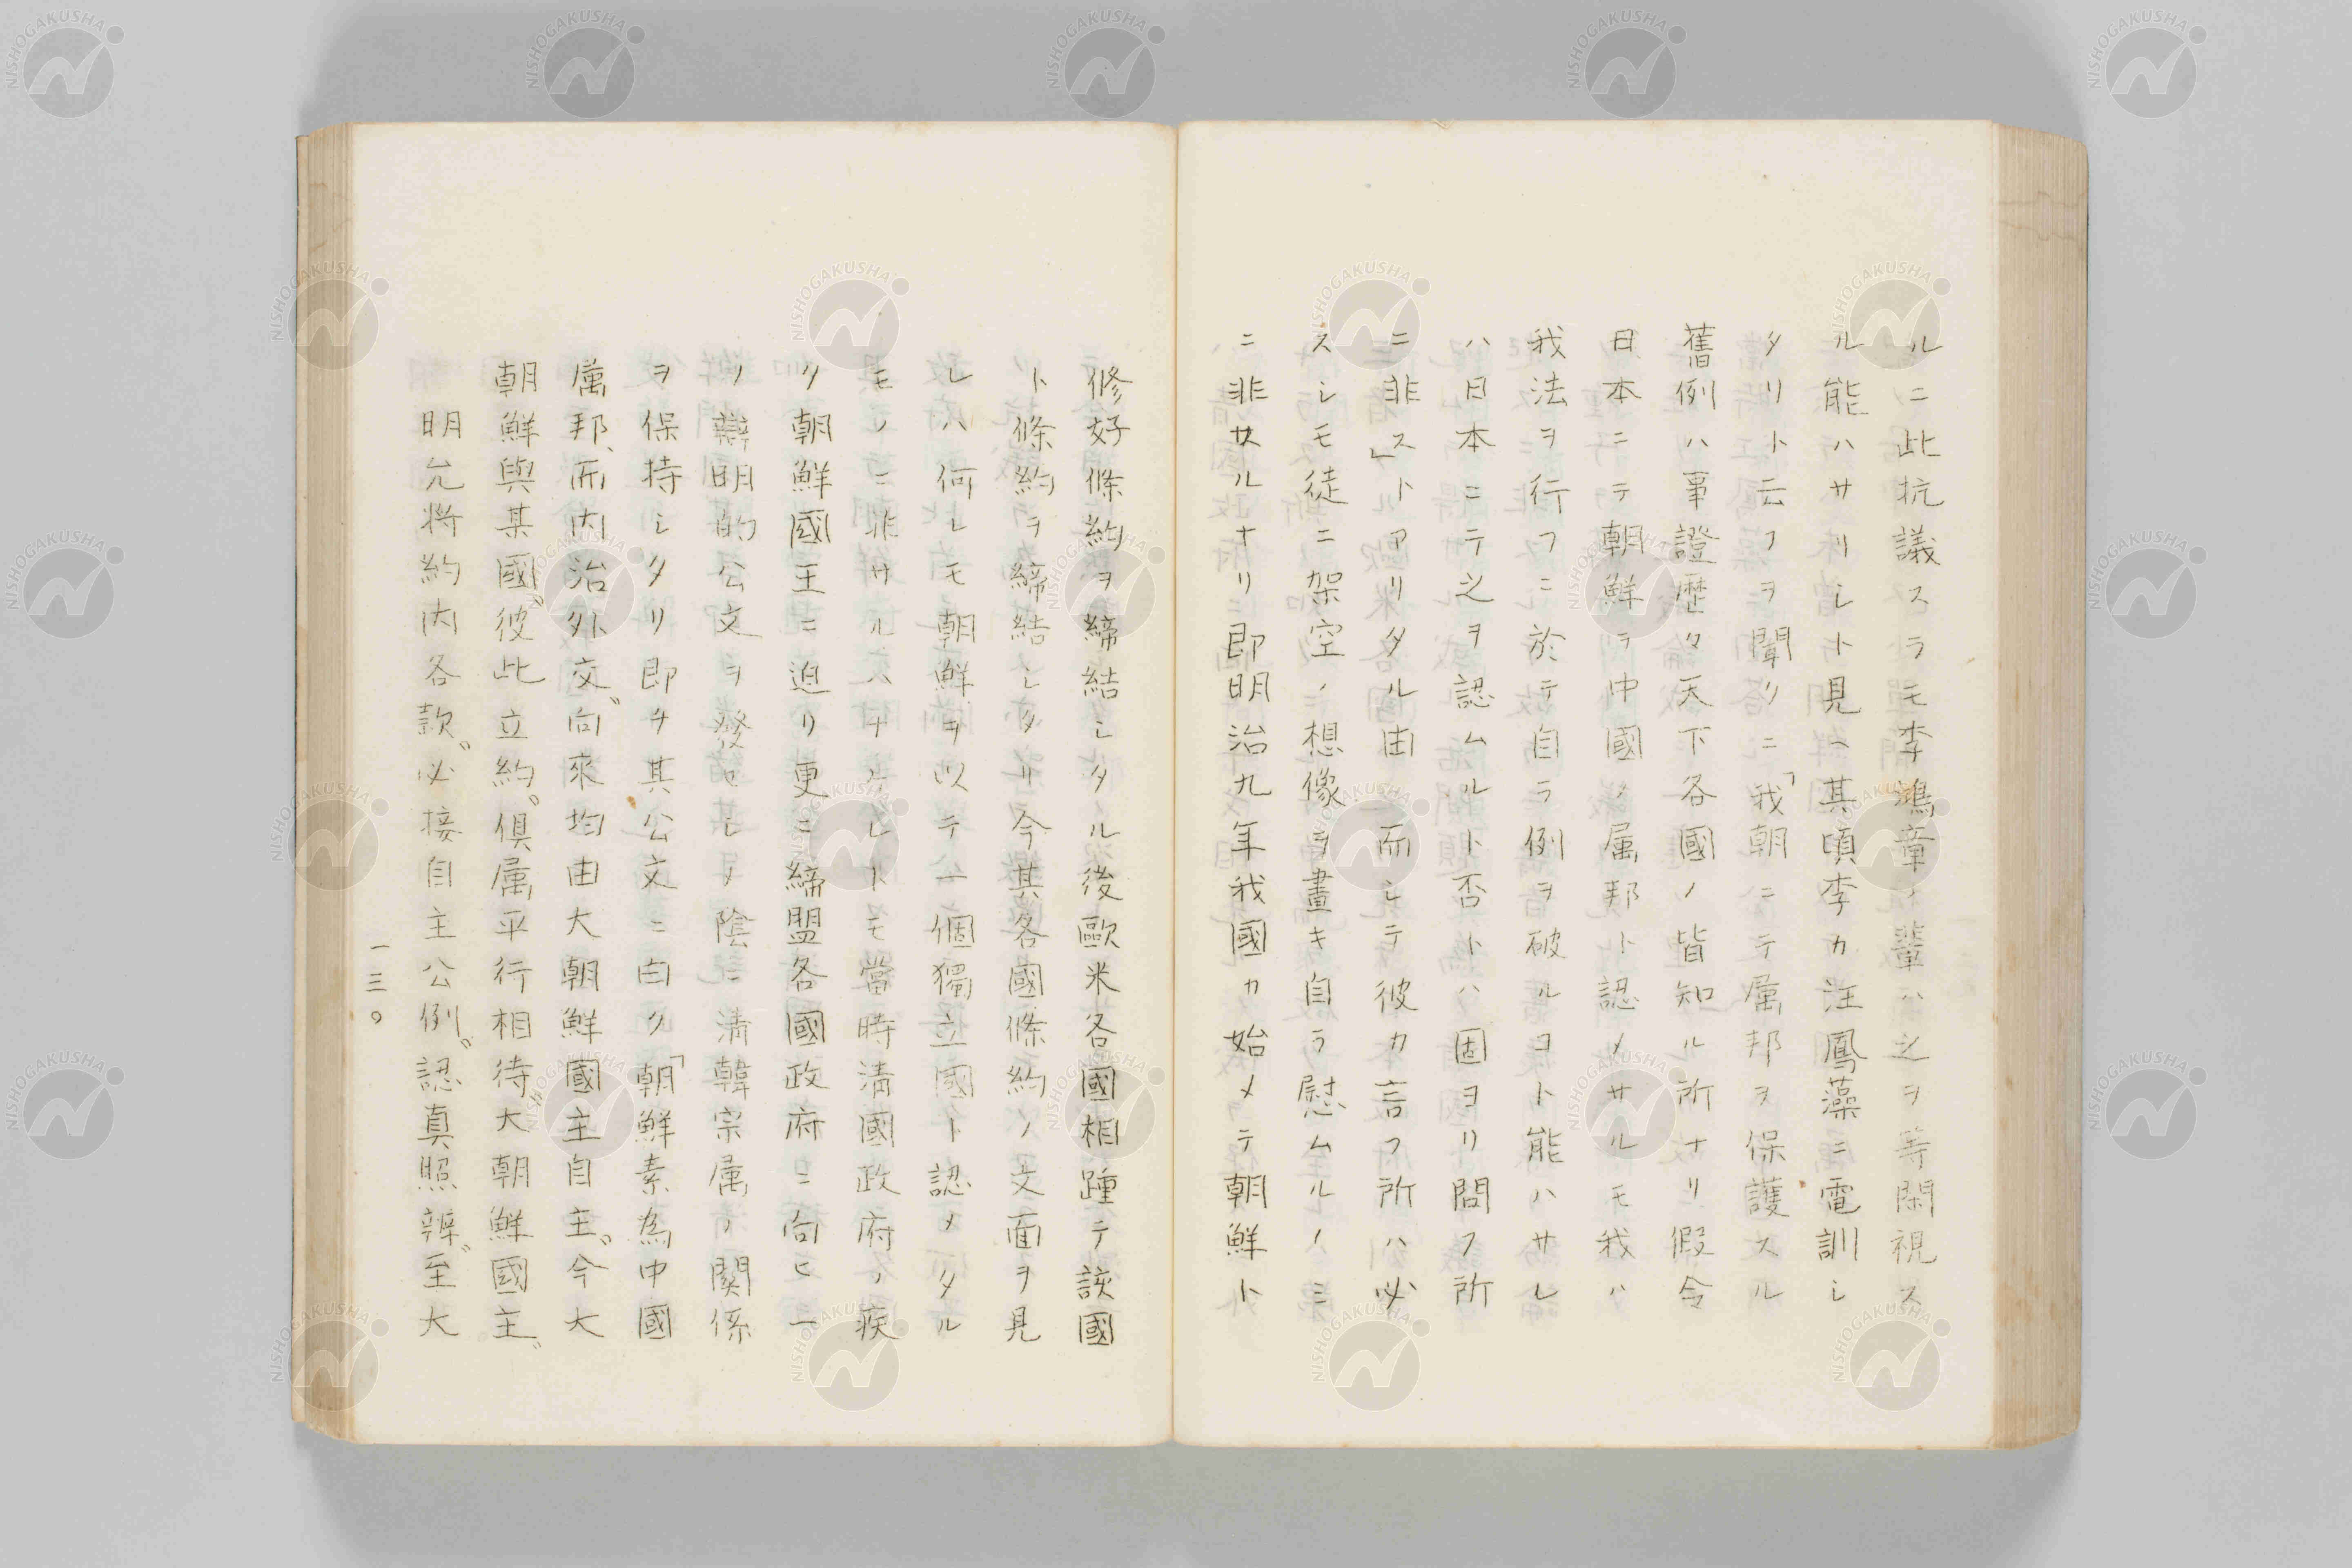 ルニ此抗議スラモ李鴻章ノ輩ハ之ヲ等閑視ス
ル能ハサリシト見ヘ其頃李カ汪鳳藻ニ電訓シ
タリト云フヲ聞クニ「我朝ニテ属邦ヲ保護スル
舊例ハ事證歴々天下各國ノ皆知ル所ナリ假令
日本ニテ朝鮮ヲ中國ノ属邦ト認メサルモ我ハ
我法ヲ行フニ於テ自ラ例ヲ破ルコト能ハサレ
ハ日本ニテ之ヲ認ムルト否トハ固ヨリ問フ所
ニ非ス」トアリタル由 而シテ彼カ言フ所ハ必
スシモ徒ニ架空ノ想像ヲ畫キ自ラ慰ムルノミ
ニ非サルナリ即明治九年我國カ始メテ朝鮮ト
修好條約ヲ締結シタル後歐米各國相踵テ該國
ト條約ヲ締結シタリ今其各國條約ノ文面ヲ見
レハ何レモ朝鮮ヲ以テ一個獨立國ト認メタル
モノニ非サルハナケレトモ當時清國政府ノ疾
ク朝鮮國王ニ迫リ更ニ締盟各國政府ニ向ヒ一
ノ辯明的公文ヲ發セシメ陰ニ清韓宗属ノ関係
ヲ保持シタリ即チ其公文ニ曰ク「朝鮮素為中國
属邦、而内治外交、向來均由大朝鮮國主自主、今大
朝鮮與某國、彼此立約、俱属平行相待、大朝鮮國主、
明允将約内各款、必接自主公例、認真照辨、至大
一三〇
NISHOGAKUSHA